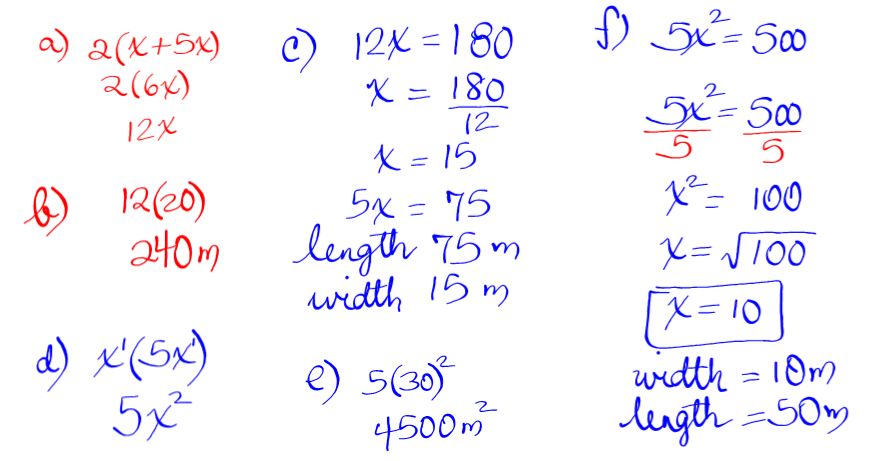 a) 2(x+5x)
2(6x)
12x
b) 12(20)
240m
c) 12x = 180
x = 180/12
x = 15
5x = 75
length 75 m
width 15 m
d) x¹(5x¹)
5x²
e) 5(30)²
4500m²
f) 5x² = 500
5x²/5 = 500/5
x² = 100
x = √100
x = 10
width = 10m
length = 50m